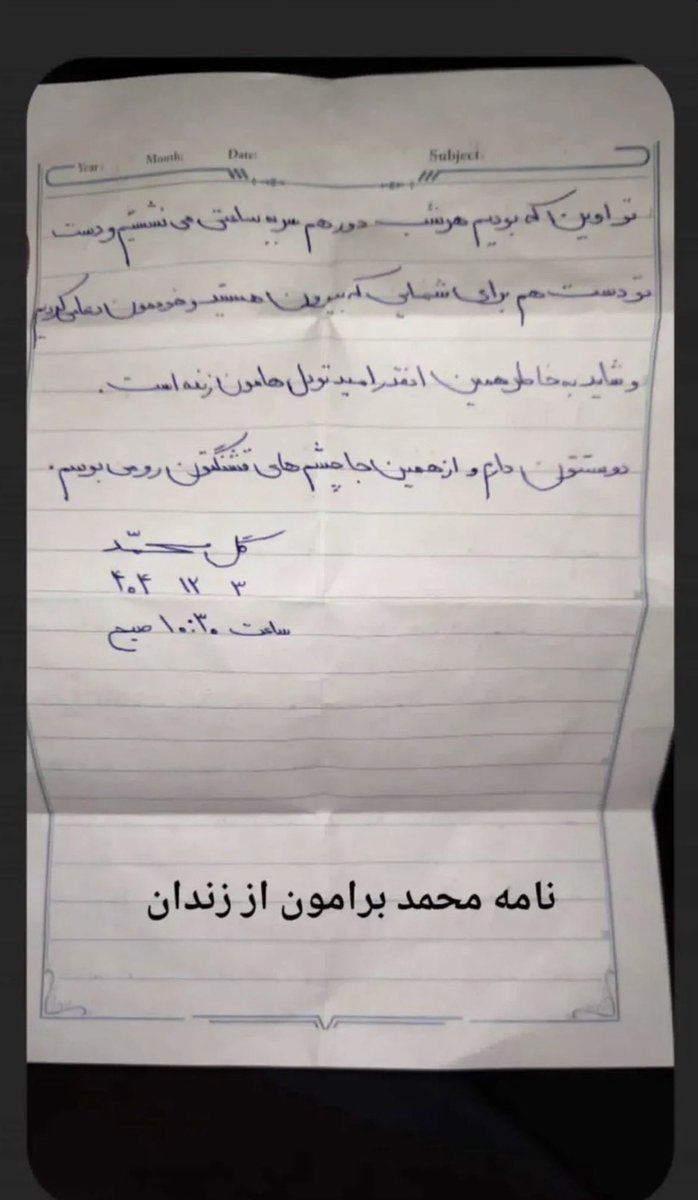 Year: Month: Date: Subject:
تو اوین که بودیم هر شب دور هم سر یه ساعتی می نشستیم و دست
تو دست هم برای شمایی که بیرون هستید و خودمون دعا می کردیم
و شاید به خاطر همین انقدر امید تو دل هامون زنده است.
دوستتون دارم و از همین جا چشم های قشنگتون رو می بوسم.
گل محمّد
۳ ۱۲ ۴۰۴
ساعت ۱۰:۳۰ صبح
نامه محمد برامون از زندان